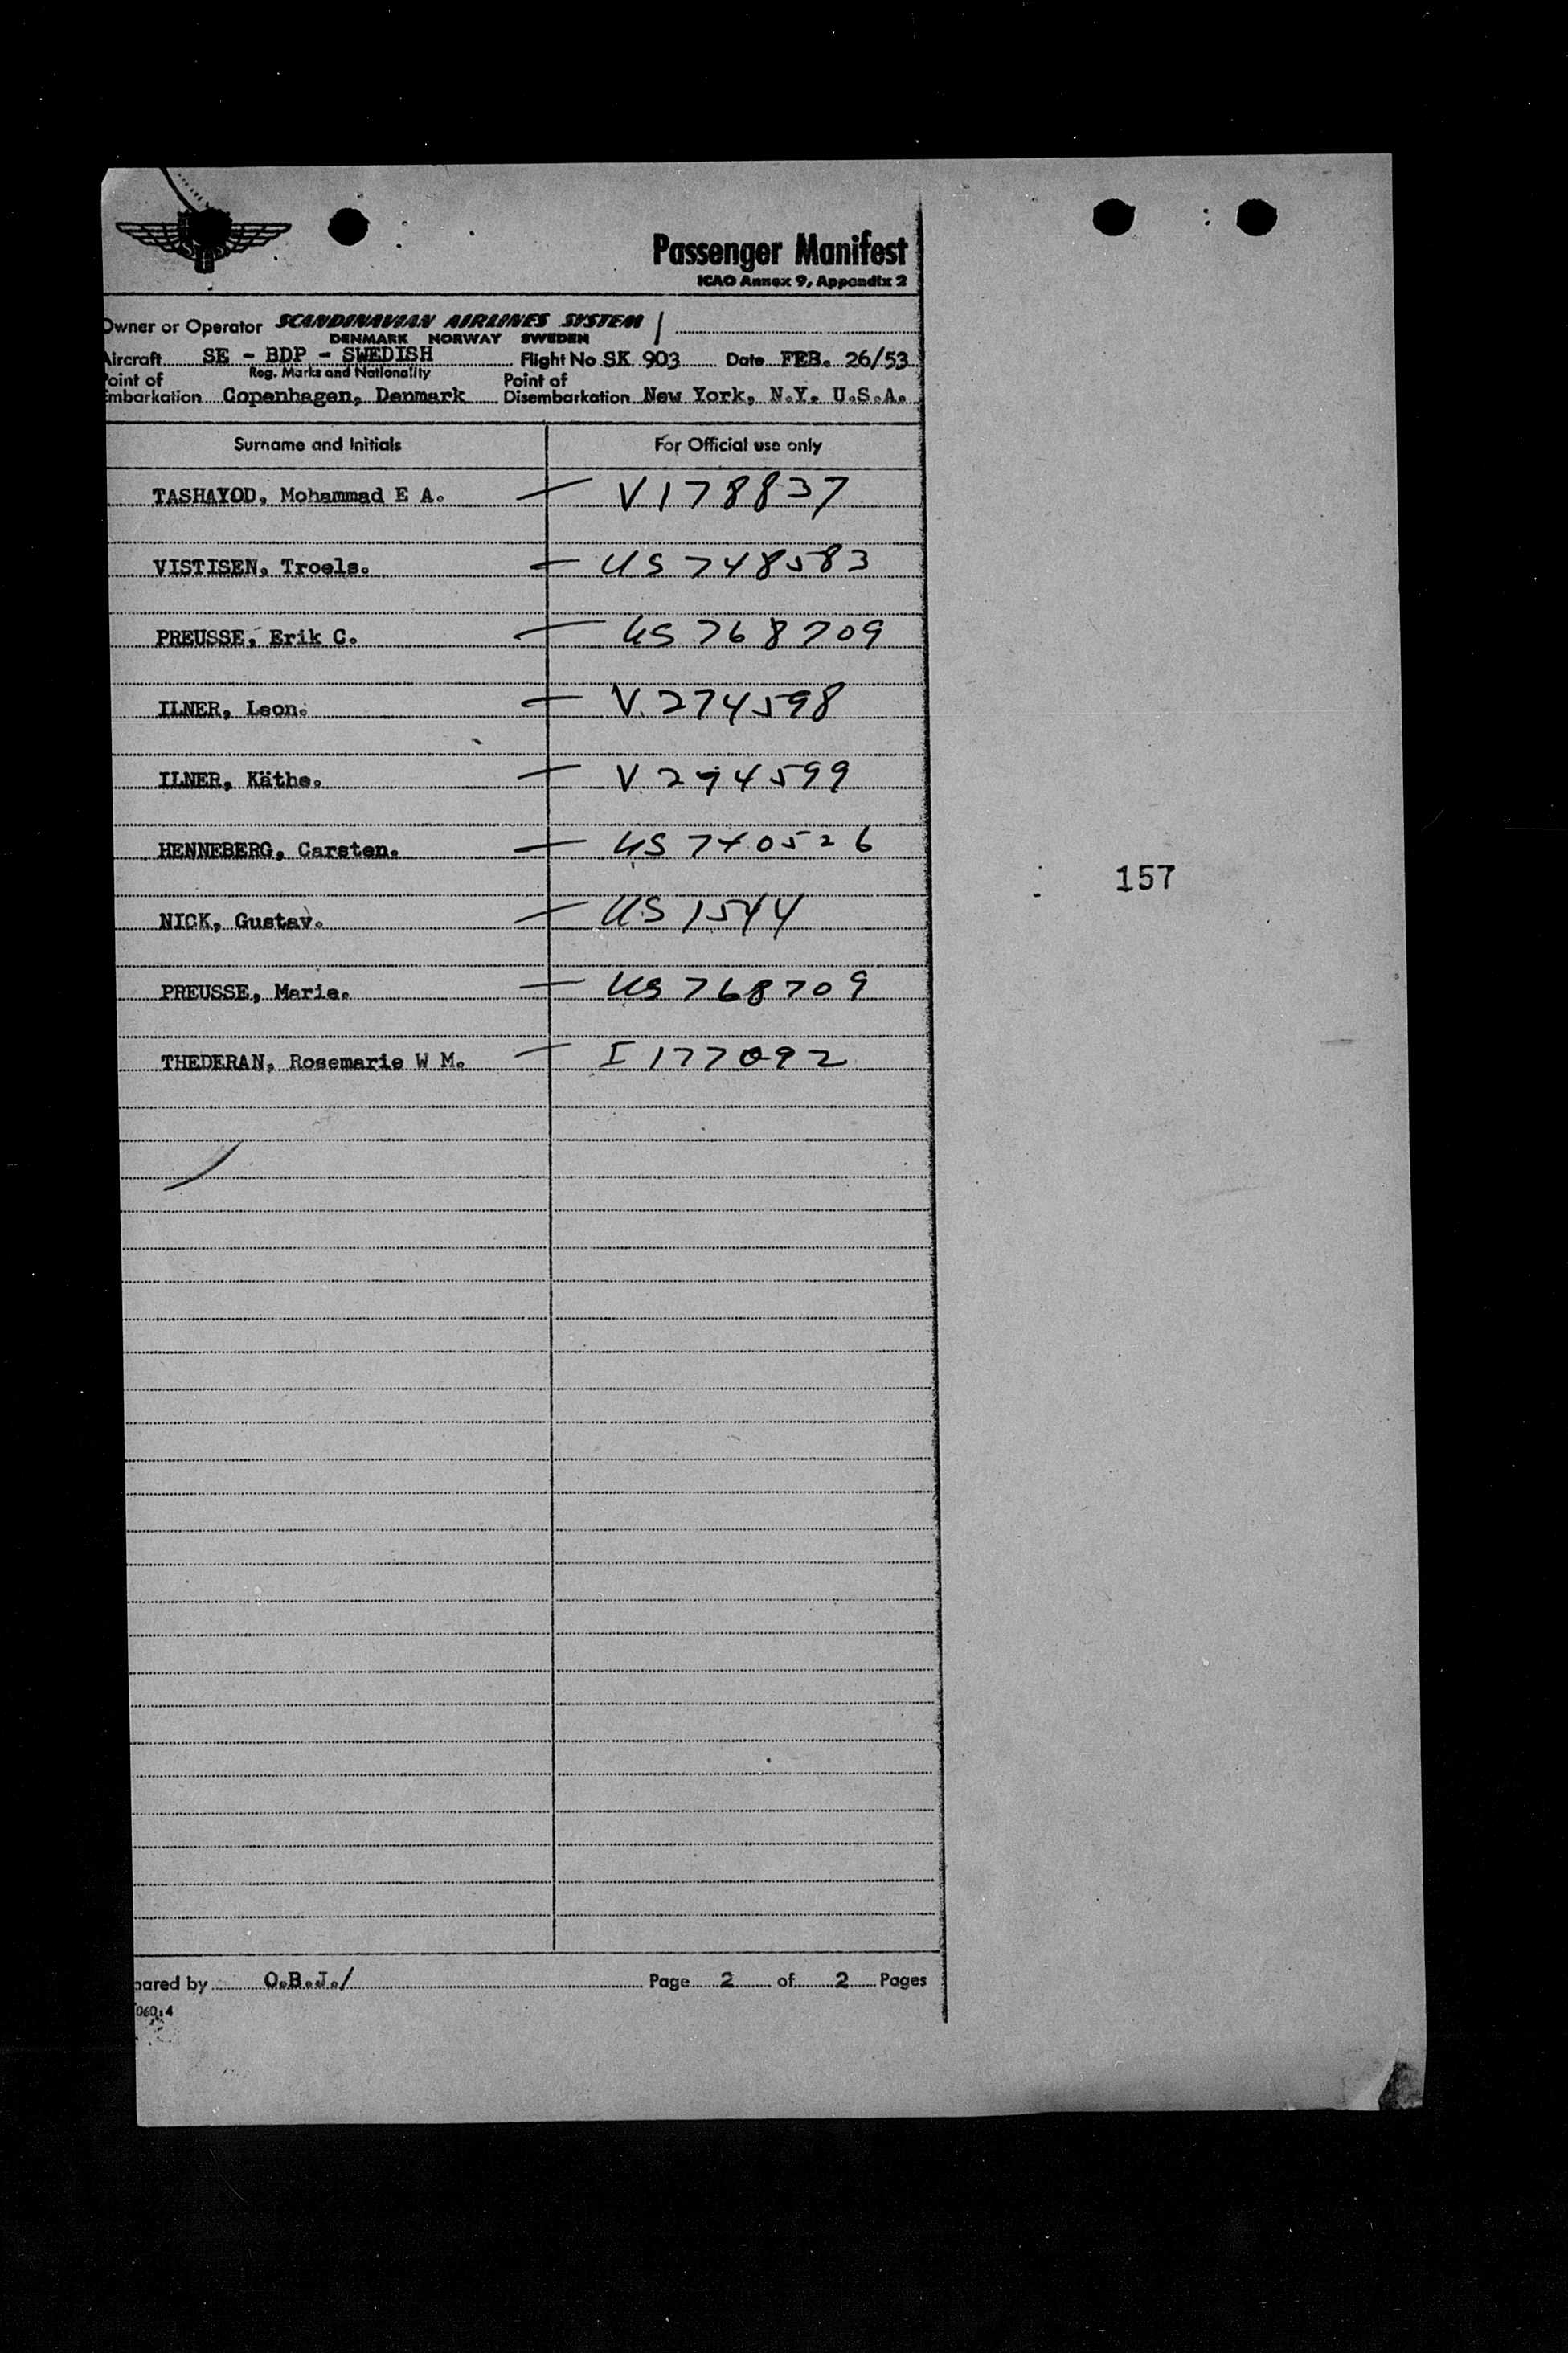 Passenger Manifest
ICAO Annex 9, Appendix 2
Owner or Operator SCANDINAVIAN AIRLINES SYSTEM /
DENMARK NORWAY SWEDEN
Aircraft SE - BDP - SWEDISH Flight No. SK 903 Date FEB. 26/53
Reg. Marks and Nationality
Point of Embarkation Copenhagen, Denmark Point of Disembarkation New York, N.Y. U.S.A.
Surname and Initials For Official use only
TASHAYOD, Mohammad E A. — V178837
VISTISEN, Troels. — US 748583
PREUSSE, Erik C. — US 768709
ILNER, Leon. — V.274598
ILNER, Käthe. — V 274599
HENNEBERG, Carsten. — US 740526
157
NICK, Gustav. — US 1544
PREUSSE, Marie. — US 768709
THEDERAN, Rosemarie W M. — I 177092
pared by O.B.J./ Page 2 of 2 Pages
060:4